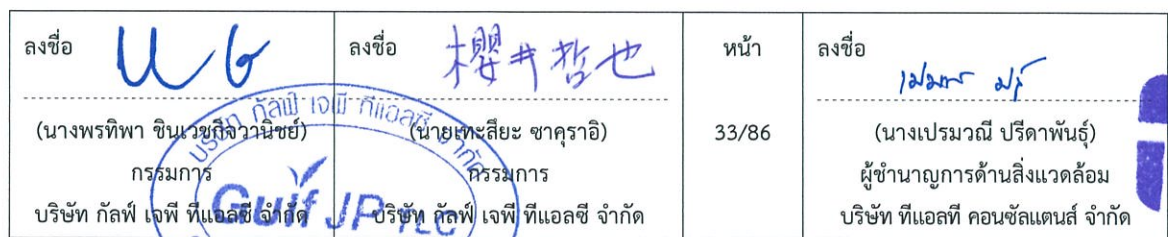 ลงชื่อ
(นางพรทิพา ชินเวชกิจวานิชย์)
กรรมการ
บริษัท กัลฟ์ เจพี ทีแอลซี จำกัด
ลงชื่อ 櫻井哲也
(นายเทะสึยะ ซาคุราอิ)
กรรมการ
บริษัท กัลฟ์ เจพี ทีแอลซี จำกัด
หน้า
33/86
ลงชื่อ
(นางเปรมวณี ปรีดาพันธุ์)
ผู้ชำนาญการด้านสิ่งแวดล้อม
บริษัท ทีแอลที คอนซัลแตนส์ จำกัด
บริษัท กัลฟ์ เจพี ทีแอลซี จำกัด
Gulf JP TLC